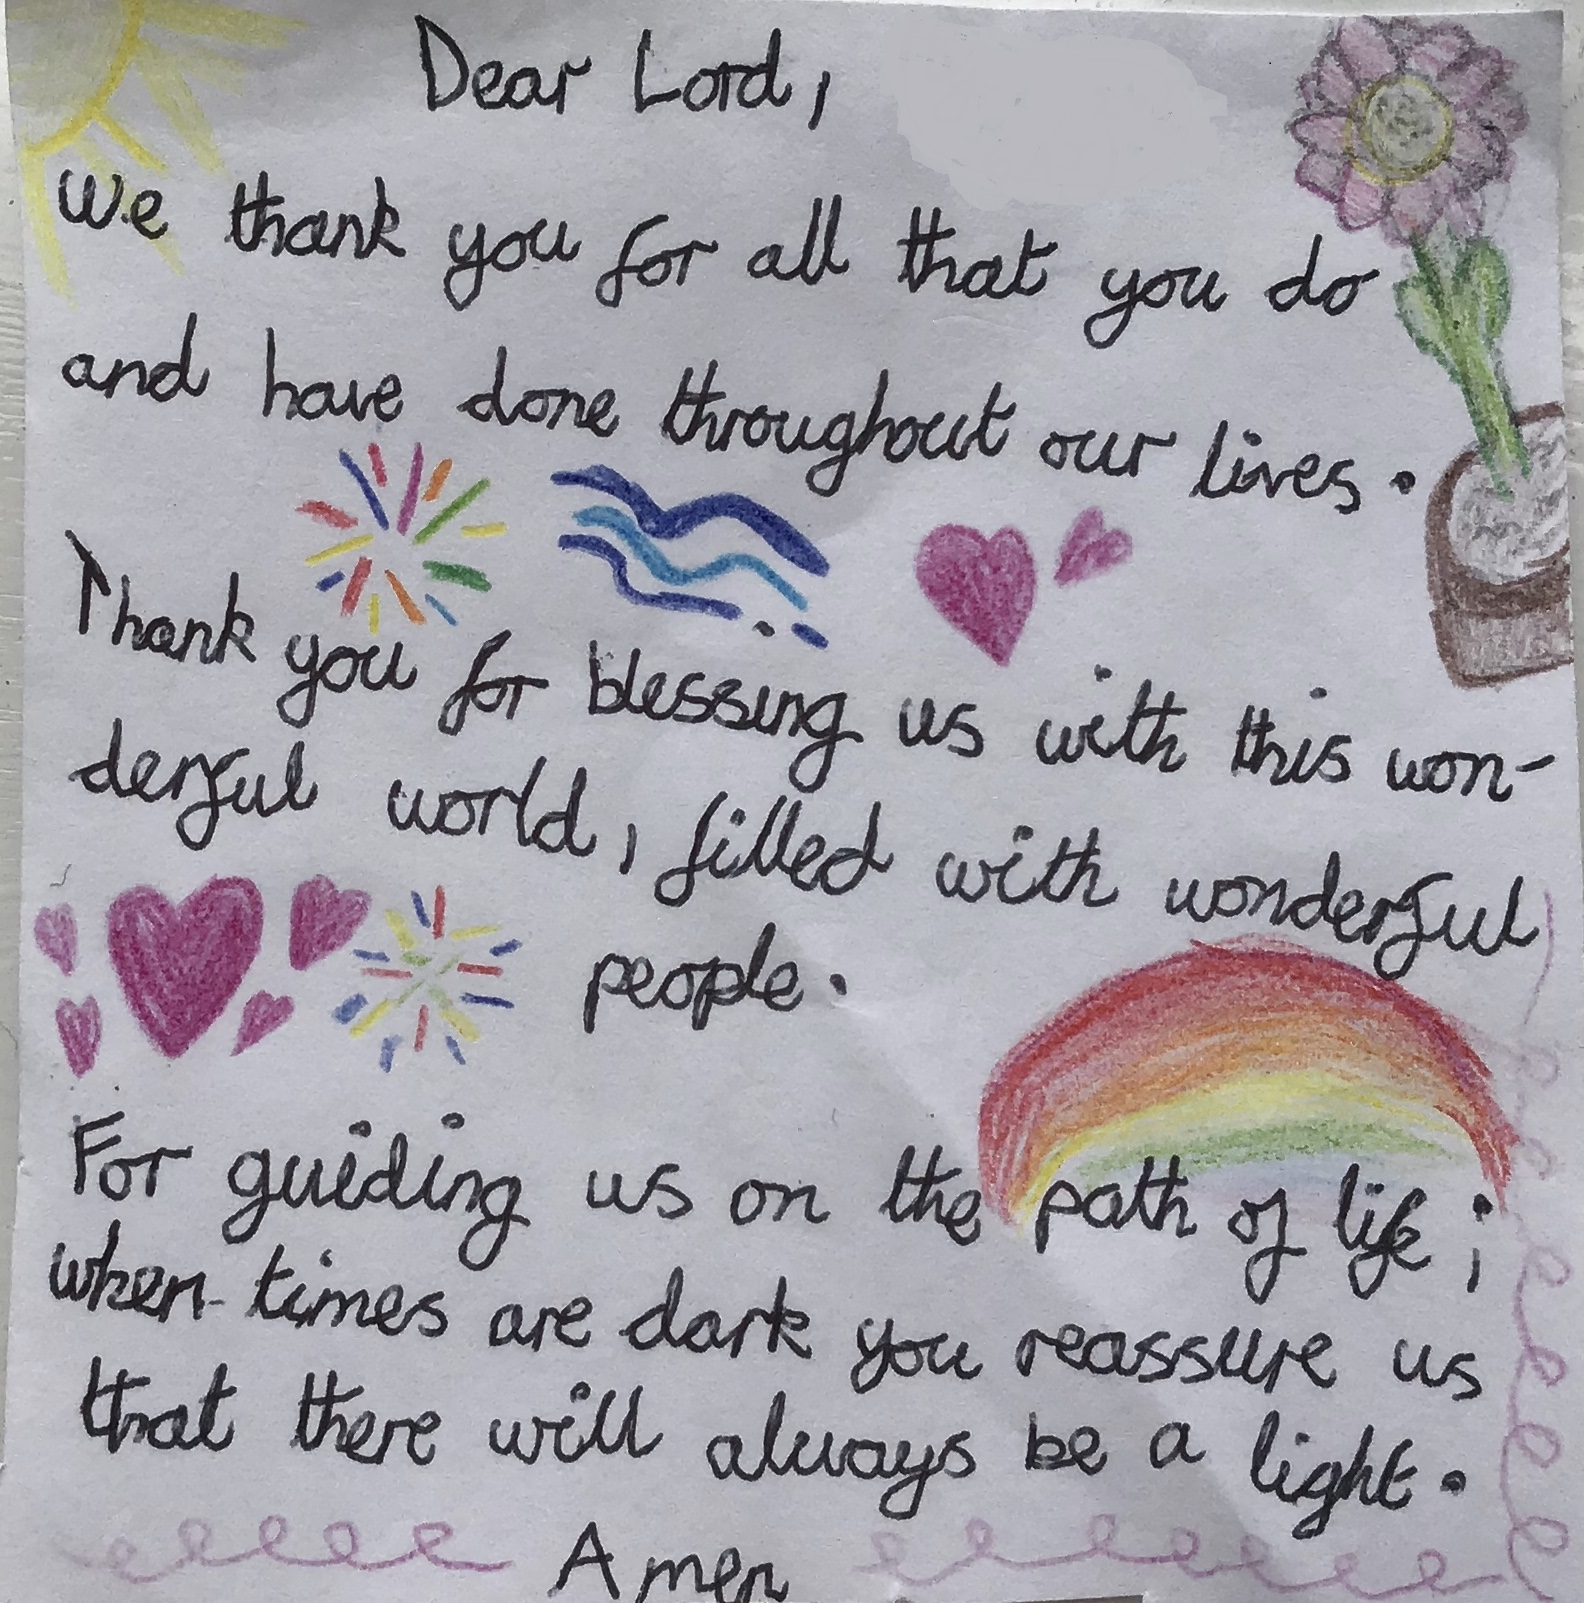 Dear Lord,
We thank you for all that you do
and have done throughout our lives.
Thank you for blessing us with this won-
derful world, filled with wonderful
people.
For guiding us on the path of life;
when times are dark you reassure us
that there will always be a light.
Amen